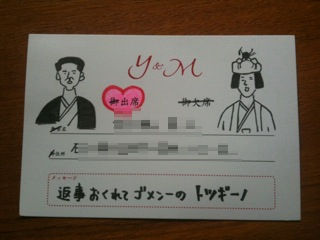 Y&M
御出席 御欠席
御芳名
御住所
メッセージ
返事おくれてゴメンーの トツギーノ